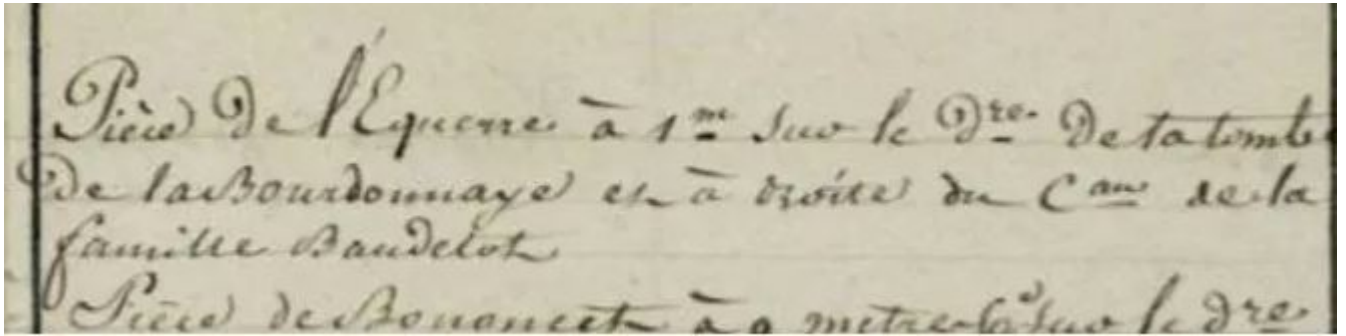 Pièce de l'Equerre à 1m sur le dre. de la tombe
de la Bourdonnaye et à droite du Cau de la
famille Baudelot
Pièce de à 9 metres sur le dre.